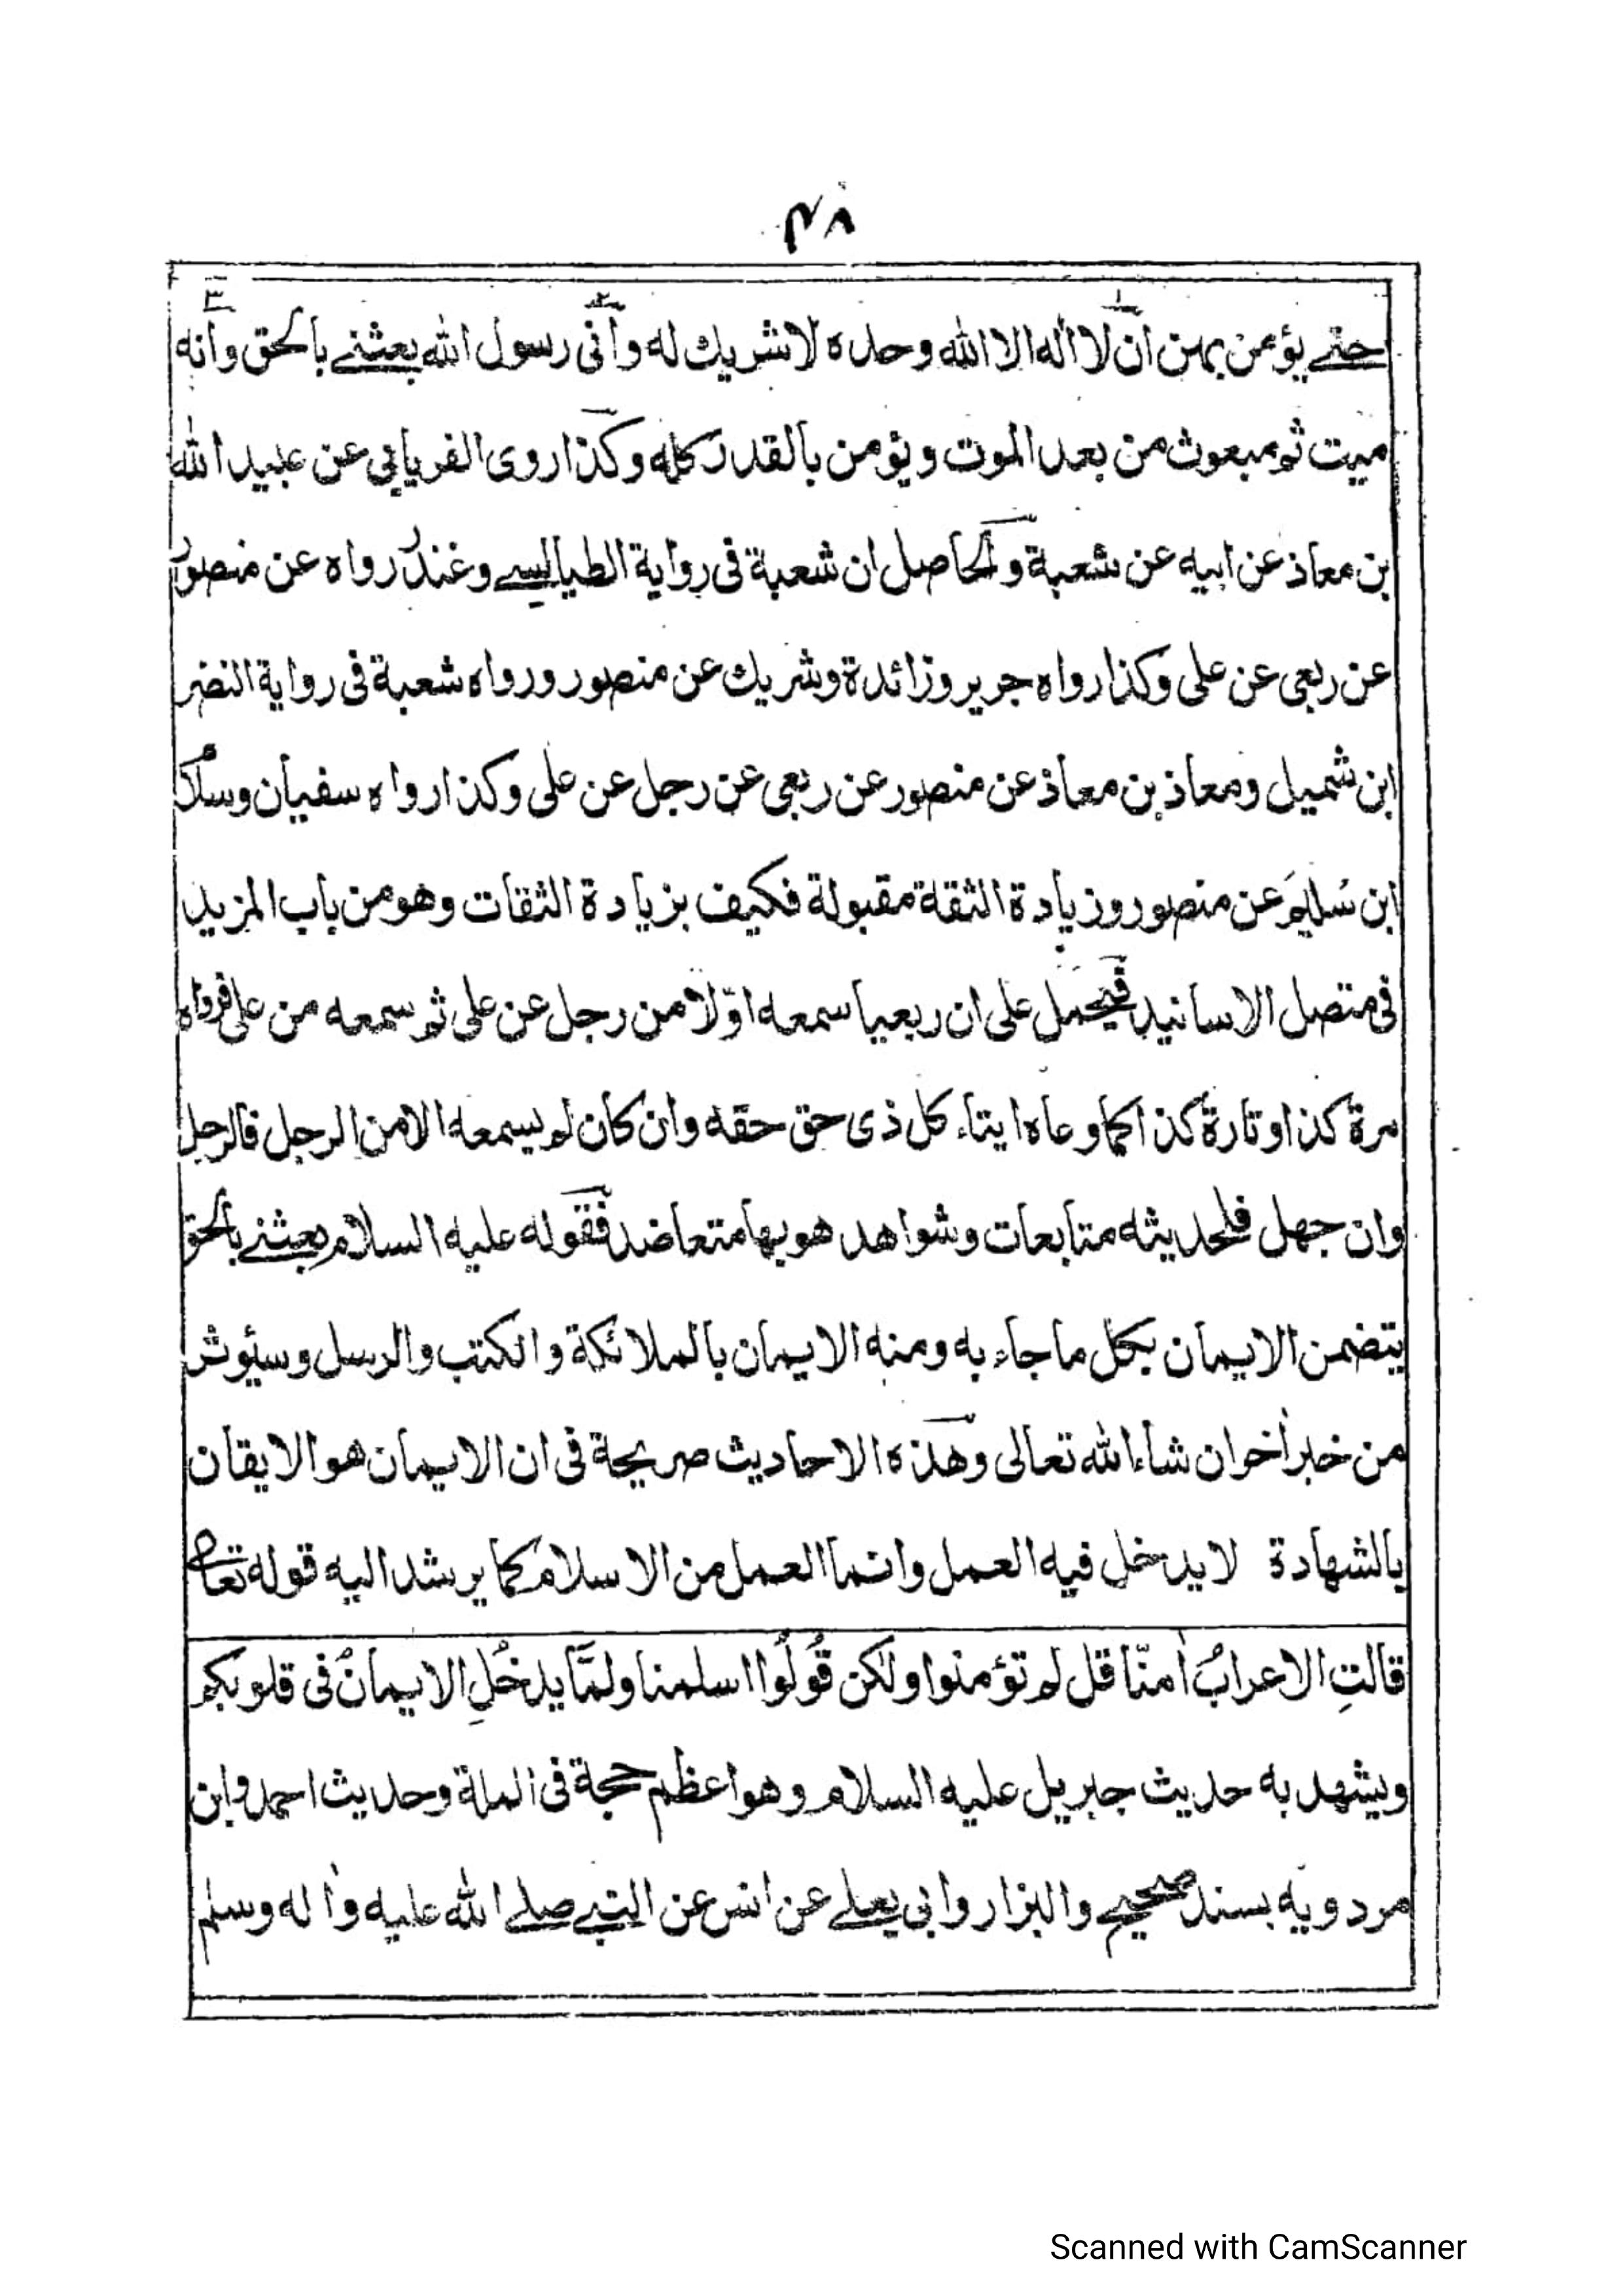 ۴۸
حتے يؤمن بهن ان لا اله الا الله وحده لا شريك له وانى رسول الله بعثنے بالحق وانه
ميت ثم مبعوث من بعد الموت ويؤمن بالقدر كله وكذا روى الفريابي عن عبيد الله
بن معاذ عن ابيه عن شعبة والحاصل ان شعبة فى رواية الطيالسے وغندر رواه عن منصور
عن ربعى عن على وكذا رواه جرير وزائدة وشريك عن منصور ورواه شعبة فى رواية النضر
ابن شميل ومعاذ بن معاذ عن منصور عن ربعى عن رجل عن على وكذا رواه سفيان وسلام
ابن سُليم عن منصور وزيادة الثقة مقبولة فكيف بزيادة الثقات وهو من باب المزيد
فى متصل الاسانيد فيحمل على ان ربعيا سمعه اوّلا من رجل عن على ثم سمعه من على فرواه
مرة كذا وتارة كذا كما وعاه ايتاء كل ذى حق حقه وان كان لم يسمعه الا من الرجل فالرجل
وان جهل فلحديثه متابعات وشواهد هو بها متعاضد فقوله عليه السلام بعثنے بالحق
يتضمن الايمان بكل ما جاء به ومنه الايمان بالملائكة والكتب والرسل وسيئوثر
من خبر اخر ان شاء الله تعالى وهذه الاحاديث صريحة فى ان الايمان هو الايقان
بالشهادة لا يدخل فيه العمل وانما العمل من الاسلام كما يرشد اليه قوله تعالے
قالتِ الاعرابُ اٰمنّا قل لم تؤمنوا ولكن قُولُوا اسلمنا ولمَّا يدخُلِ الايمانُ فى قلوبكم
ويشهد به حديث جبريل عليه السلام وهو اعظم حجة فى الملة وحديث احمد وابن
مردويه بسند صحيح والبزار وابى يعلے عن انس عن النبے صلے الله عليه واٰله وسلم
Scanned with CamScanner